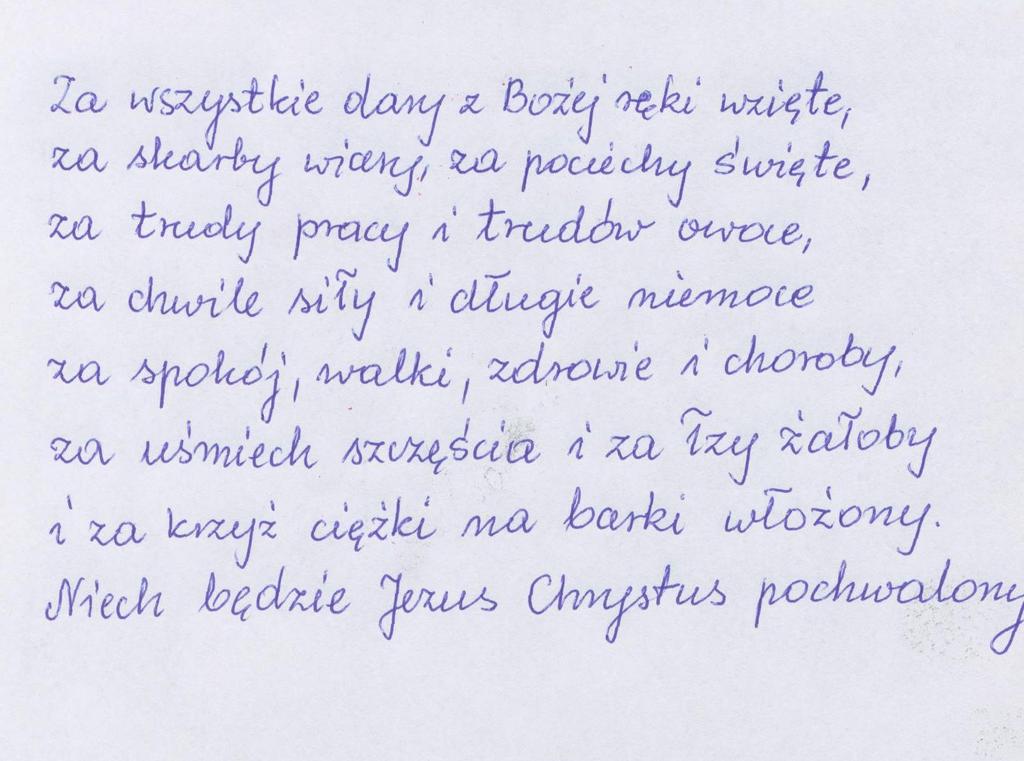 Za wszystkie dary z Bożej ręki wzięte,
za skarby wiary, za pociechy święte,
za trudy pracy i trudów owoce,
za chwile siły i długie niemoce
za spokój, walki, zdrowie i choroby,
za uśmiech szczęścia i za łzy żałoby
i za krzyż ciężki na barki włożony.
Niech będzie Jezus Chrystus pochwalony